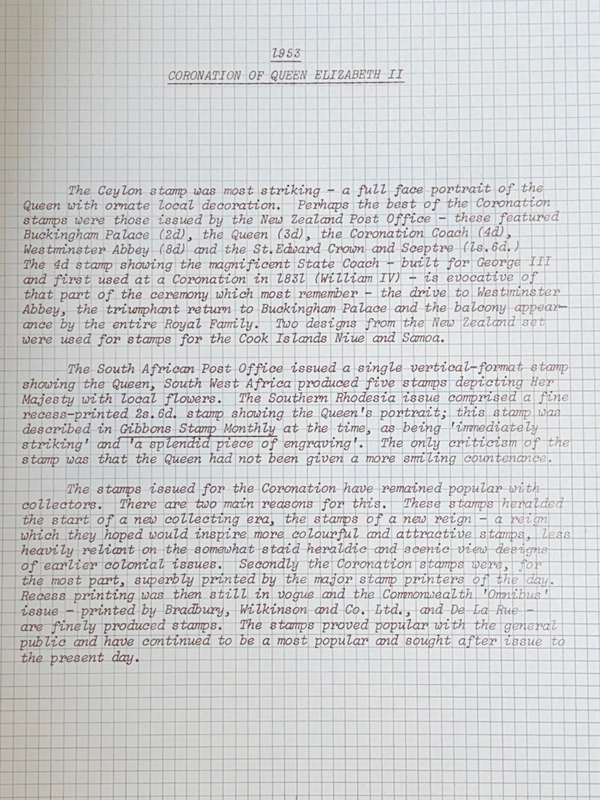 1953
CORONATION OF QUEEN ELIZABETH II
The Ceylon stamp was most striking - a full face portrait of the
Queen with ornate local decoration. Perhaps the best of the Coronation
stamps were those issued by the New Zealand Post Office - these featured
Buckingham Palace (2d), the Queen (3d), the Coronation Coach (4d),
Westminster Abbey (8d) and the St.Edward Crown and Sceptre (1s.6d.)
The 4d stamp showing the magnificent State Coach - built for George III
and first used at a Coronation in 1831 (William IV) - is evocative of
that part of the ceremony which most remember - the drive to Westminster
Abbey, the triumphant return to Buckingham Palace and the balcony appear-
ance by the entire Royal Family. Two designs from the New Zealand set
were used for stamps for the Cook Islands Niue and Samoa.
The South African Post Office issued a single vertical-format stamp
showing the Queen, South West Africa produced five stamps depicting Her
Majesty with local flowers. The Southern Rhodesia issue comprised a fine
recess-printed 2s.6d. stamp showing the Queen's portrait; this stamp was
described in Gibbons Stamp Monthly at the time, as being 'immediately
striking' and 'a splendid piece of engraving'. The only criticism of the
stamp was that the Queen had not been given a more smiling countenance.
The stamps issued for the Coronation have remained popular with
collectors. There are two main reasons for this. These stamps heralded
the start of a new collecting era, the stamps of a new reign - a reign
which they hoped would inspire more colourful and attractive stamps, less
heavily reliant on the somewhat staid heraldic and scenic view designs
of earlier colonial issues. Secondly the Coronation stamps were, for
the most part, superbly printed by the major stamp printers of the day.
Recess printing was then still in vogue and the Commonwealth 'Omnibus'
issue - printed by Bradbury, Wilkinson and Co. Ltd., and De La Rue -
are finely produced stamps. The stamps proved popular with the general
public and have continued to be a most popular and sought after issue to
the present day.